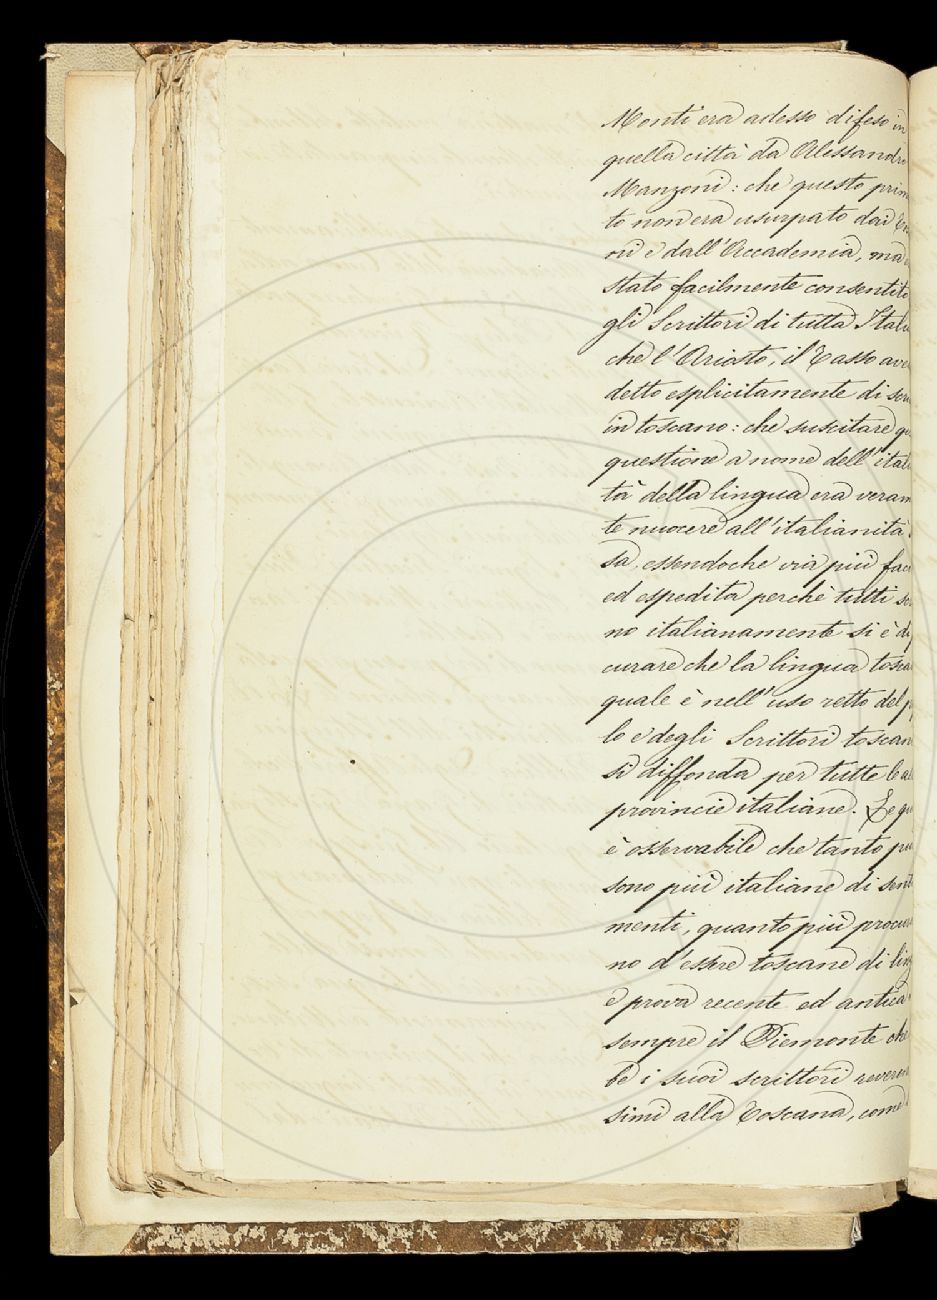 Monti era adesso difeso in
quella città da Alessandro
Manzoni: che questo prim
to non era usurpato dai
ni e dall'Accademia, ma
stato facilmente consentito
gli Scrittori di tutta Italia
che l'Ariosto, il Tasso ave
detto esplicitamente di scri
in toscano: che suscitare
questione a nome dell'itali
tà della lingua era veram
te nuocere all'italianità
sa, essendoche via più faci
ed espedita perchè tutti
no italianamente si è
curare che la lingua tosca
quale è nell'uso retto del p
lo e degli Scrittori toscan
si diffonda per tutte le al
provincie italiane. Le qu
è osservabile che tanto più
sono più italiane di senti
menti, quanto più procura
no d'essere toscane di ling
e prova recente ed antica
sempre il Piemonte ch
be i suoi scrittori reveren
simi alla Toscana, come